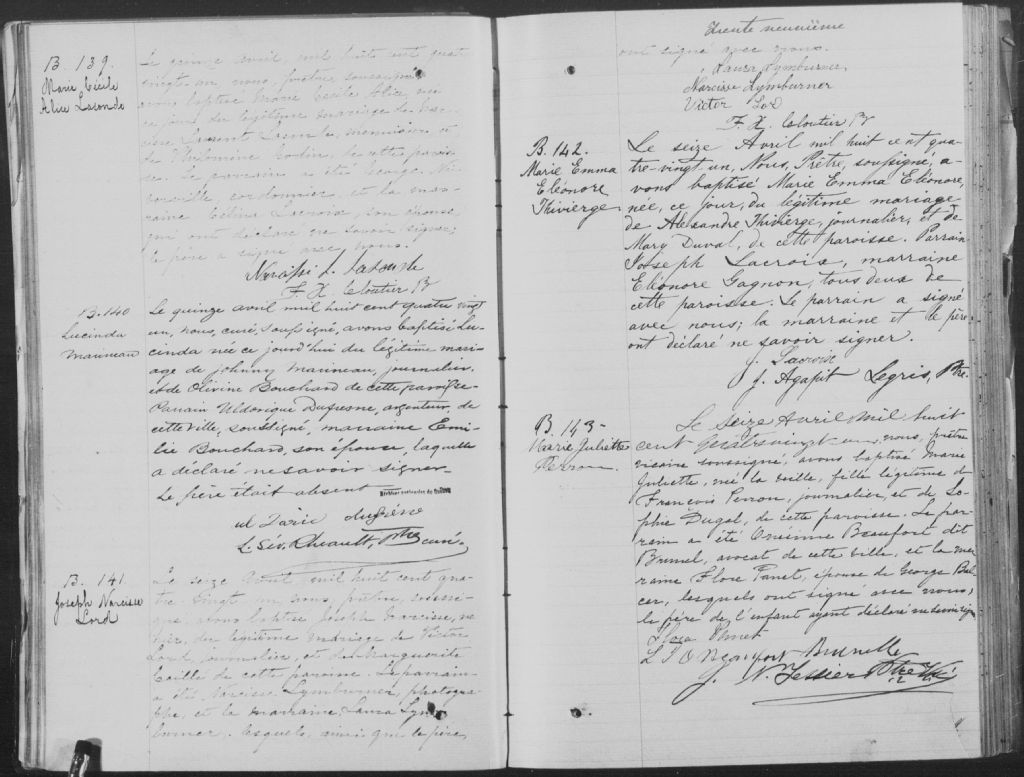 B. 139.
Marie Cécile
Alice Lasonde
Le quinze avril, mil huit cent quatre
vingt-un nous, prêtre soussigné
avons baptisé Marie Cécile Alice, née
ce jour, du légitime mariage de
menuisier, et
de Philomène de cette paroisse.
Le parrain a été George
cordonnier et la mar-
raine Célina Lacroix, son épouse,
qui ont déclaré ne savoir signer;
le père a signé avec nous.
F. X. Cloutier Ptr
B. 140
Lucinda
Maurneau
Le quinze avril mil huit cent quatre vingt
un, nous, curé, soussigné, avons baptisé Lu-
cinda née ce jourd'hui du légitime mari-
age de Johnny Maurneau, journalier,
et de Olivine Bouchard de cette paroisse-
Parrain Uldorique Dufresne, argenteur, de
cette ville, soussigné, marraine Emi-
lie Bouchard, son épouse, laquelle
a déclaré ne savoir signer-
Le père était absent
Archives nationales du Québec
L. Sév. Rheault, Ptre curé.
B. 141
Joseph Narcisse
Lord
Le seize Avril, mil huit cent qua-
tre vingt un, nous, prêtre, soussi-
gné, avons baptisé Joseph Narcisse, né
hier, du légitime mariage de Victor
Lord, journalier, et de Marguerite
de cette paroisse. Le parrain
a été Narcisse Lymburner, photogra-
phe, et la marraine, Laura Lym-
burner. Lesquels, ainsi que le père,
Trente neuvième
ont signé avec nous.
Laura Lymburner,
Narcisse Lymburner
Victor Lord
F. X. Cloutier Ptr
B. 142.
Marie Emma
Eléonore
Thivierge
Le seize Avril mil huit cent qua-
tre-vingt un, Nous, Prêtre, soussigné, a-
vons baptisé Marie Emma Eléonore,
née, ce jour, du légitime mariage
de Alexandre Thivierge, journalier, et de
Mary Duval, de cette paroisse. Parrain
Joseph Lacroix, marraine
Eléonore Gagnon, tous deux de
cette paroisse. Le parrain a signé
avec nous; la marraine et le père
ont déclaré ne savoir signer.
J. Lacroix
J. Agapit Legris, Ptre.
B. 143-
Marie Juliette
Perron.
Le seize Avril mil huit
cent quatrevingt un, nous, prêtre
vicaire soussigné, avons baptisé Marie
Juliette, née la veille, fille légitime de
François Perron, journalier, et de So-
phie Dugal, de cette paroisse. Le par-
rain a été Onésime Beaufort dit
Brunel, avocat de cette ville, et la mar
raine Flore Panet, épouse de George Bal-
cer, lesquels ont signé avec nous,
le père de l'enfant ayant déclaré ne savoir sign
Flora Panet
L J O Beaufort Brunelle
J. N. Tessier Ptre Vic